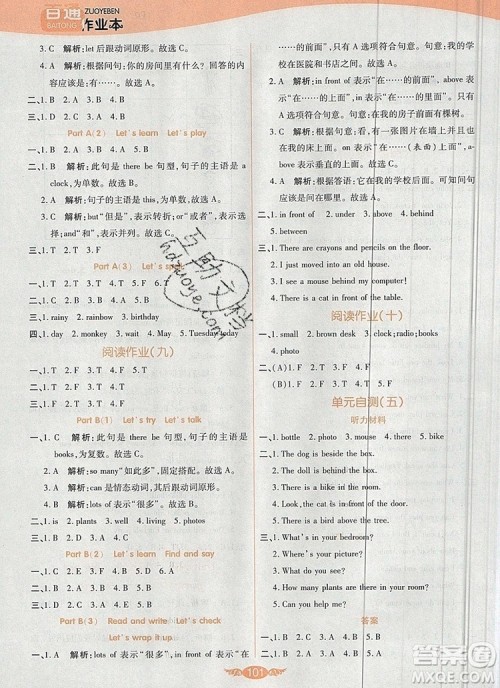 百通
BAITONG
ZUOYEBEN
作业本
3. C 解析:let 后跟动词原形。故选 C。
4. A 解析:句意:你的房间里有什么？回答的
内容应该是:有……。故选 A。
二、1. B 2. A 3. A 4. B
三、1. D 2. C 3. A 4. B
Part A(2) Let's learn Let's play
一、1. B 2. A 3. B 4. A 5. B
二、1. B 解析:此句是 there be 句型,句子的主语是 a
clock,为单数。故选 B。
2. A 解析:句子的主语是 this,为单数。故选 A。
3. C 解析:“but”表示转折;“or”或者”,表示选
择;“and”和”,表示并列。故选 C。
三、1. T 2. T 3. F
Part A(3) Let's
一、1. F 2. T 3. T 4. F 5. T
二、1. B 2. C 3. C
三、1. rainy 2. rainbow 3. birthday
四、1. day 2. monkey 3. wait 4. say 5. Tuesday today
阅读作业(九)
一、1. T 2. F 3. T 4. F 5. T
二、1. T 2. F 3. T 4. F 5. F
Part B(1) Let's try Let's talk
一、1. C 解析:此句是 there be 句型,句子的主语是
books,为复数。故选 C。
2. A 解析:so many“如此多”,固定搭配。故选 A。
3. B 解析:can 是情态动词,其后跟动词原形。故选 B。
4. A 解析:lots of 表示“很多”。故选 A。
二、1. is 2. plants 3. and 4. photos 5. lots
三、1. C 2. A 3. D 4. B
Part B(2) Let's learn Find and say
一、1. B 2. C 3. B 4. A 5. C
二、1. C 2. B 3. A 4. B
三、1. B 2. A 3. A 4. B
Part B(3) Read and write Let's check
Let's wrap it up
一、1. B 解析:lots of 表示“很多”,in 表示“在
……的前面”,只有 A 选项符合句意。句意:我
的学校在医院和书店之间。故选 A。
3. C 解析:in front of 表示“在……的前面”,above
表示“在……的上面”,in“在……里面”。根据
句意:在我的房子前面有棵树。故选 C。
4. B 解析:看,有一张图片在墙上并且
在床上面。on 表示“在……(表面)上面”,
above 表示垂直的上面。故选 B。
5. A 解析:根据答语:它在我的学校后面。可知问
句是询问在哪里。故选 A。
二、1. in front of 2. under 3. above 4. behind
5. between
三、1. There are crayons and pencils on the ground.
2. I just moved in.
3. I see a mouse behind my computer!
4. There is a cat in front of the table.
阅读作业(十)
一、1. small 2. brown 3. door 4. clock; radio; books
5. photo
二、(A) 1. T 2. F 3. F 4. F
(B) 1. B 2. A
单元自测(五)
听力材料
一、1. bottle 2. photo 3. mouse 4. house 5. above
二、1. The dog is beside the desk.
2. The ball is behind the door.
3. The doll is in the box.
4. There is a bike in front of the house.
5. Look! The cat is above the bed.
三、1. What's in your bedroom?
2. Where is your picture?
3. What can you see in the picture?
4. How many plants are there in your room?
5. Can you help me?
答案
一、1. B 2. A 3. A 4. B 5. B
二、1. A 2. A 3. B 4. B 5. B
三、1. B 2. A 3. B 4. B 5. B
101
互助文档
hdzuoye.com
答案圈
MXQE.COM